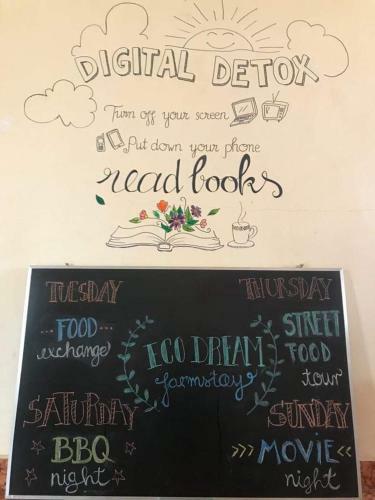 DIGITAL DETOX
Turn off your screen
Put down your phone
read books
TUESDAY
FOOD
exchange
THURSDAY
STREET
FOOD
tour
ECO DREAM
farmstay
SATURDAY
BBQ
night
SUNDAY
>>> MOVIE <<
night